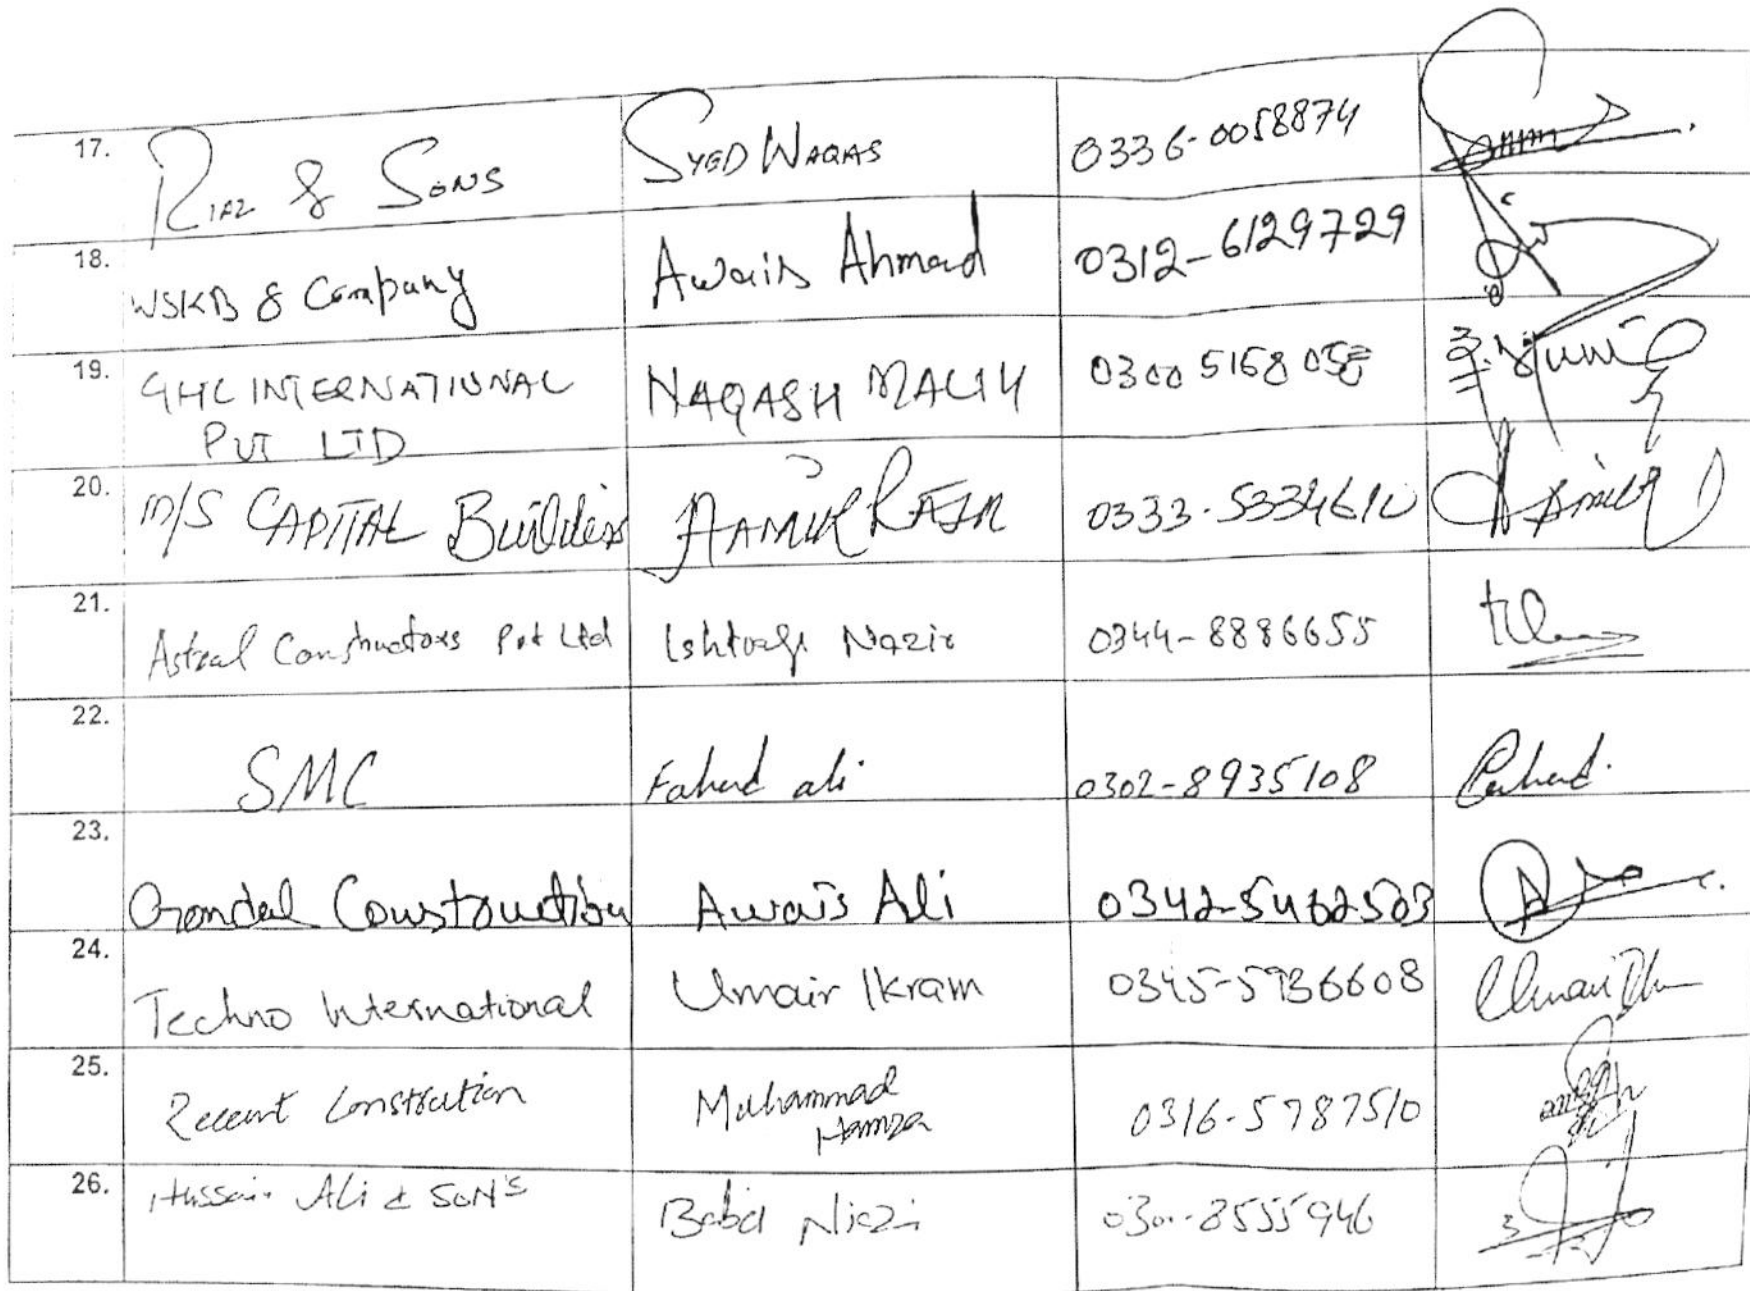 17. RIAZ & SONS SYED WAQAS 0336-0058874
18. WSKB & Company Awais Ahmad 0312-6129729
19. GHL INTERNATIONAL NAQASH MALIK 0300 5158058
PVT LTD
20. M/S CAPITAL Builders AAMIR RAJA 0333-5334612
21. Astral Constructors Pvt Ltd Ishtiaq Nazir 0344-8886655
22. SMC Fahad ali 0302-8935108 Fahad.
23. Gondal Construction Awais Ali 0342-5462503
24. Techno International Umair Ikram 0345-5736608
25. Recent Constrution Muhammad 0316-5787510
Hamza
26. Hussain Ali & SON'S Babar Niazi 8555946